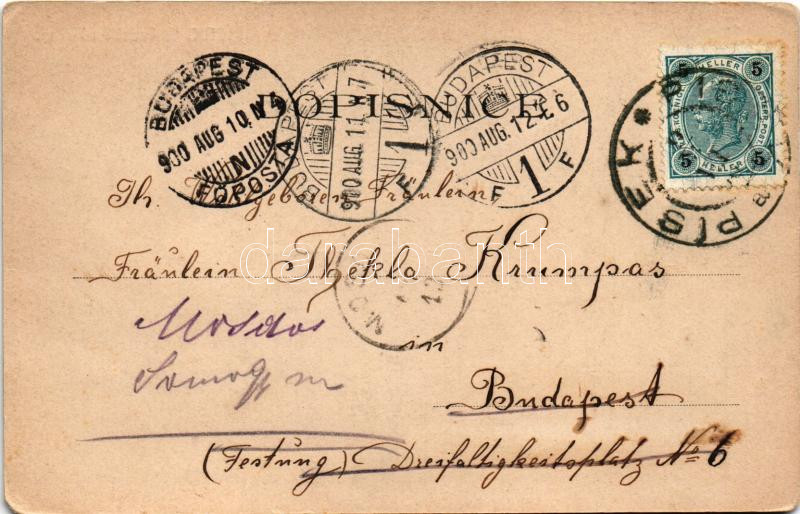 DOPISNICE
BUDAPEST
900 AUG 10 N
N
FŐPOSTA
BUDAPEST
900 AUG. 11 7
1
F
BUDAPEST
900 AUG. 12
6
F 1 F
5 HELLER 5
5 HELLER 5
PÍSEK
Th. Wohlgeboren Fräulein,
Fräulein Thekla Krumpas
MOS
Mosdós
Somogy m
in
Budapest
(Festung) Dreifaltigkeitsplatz No 6
darabanth